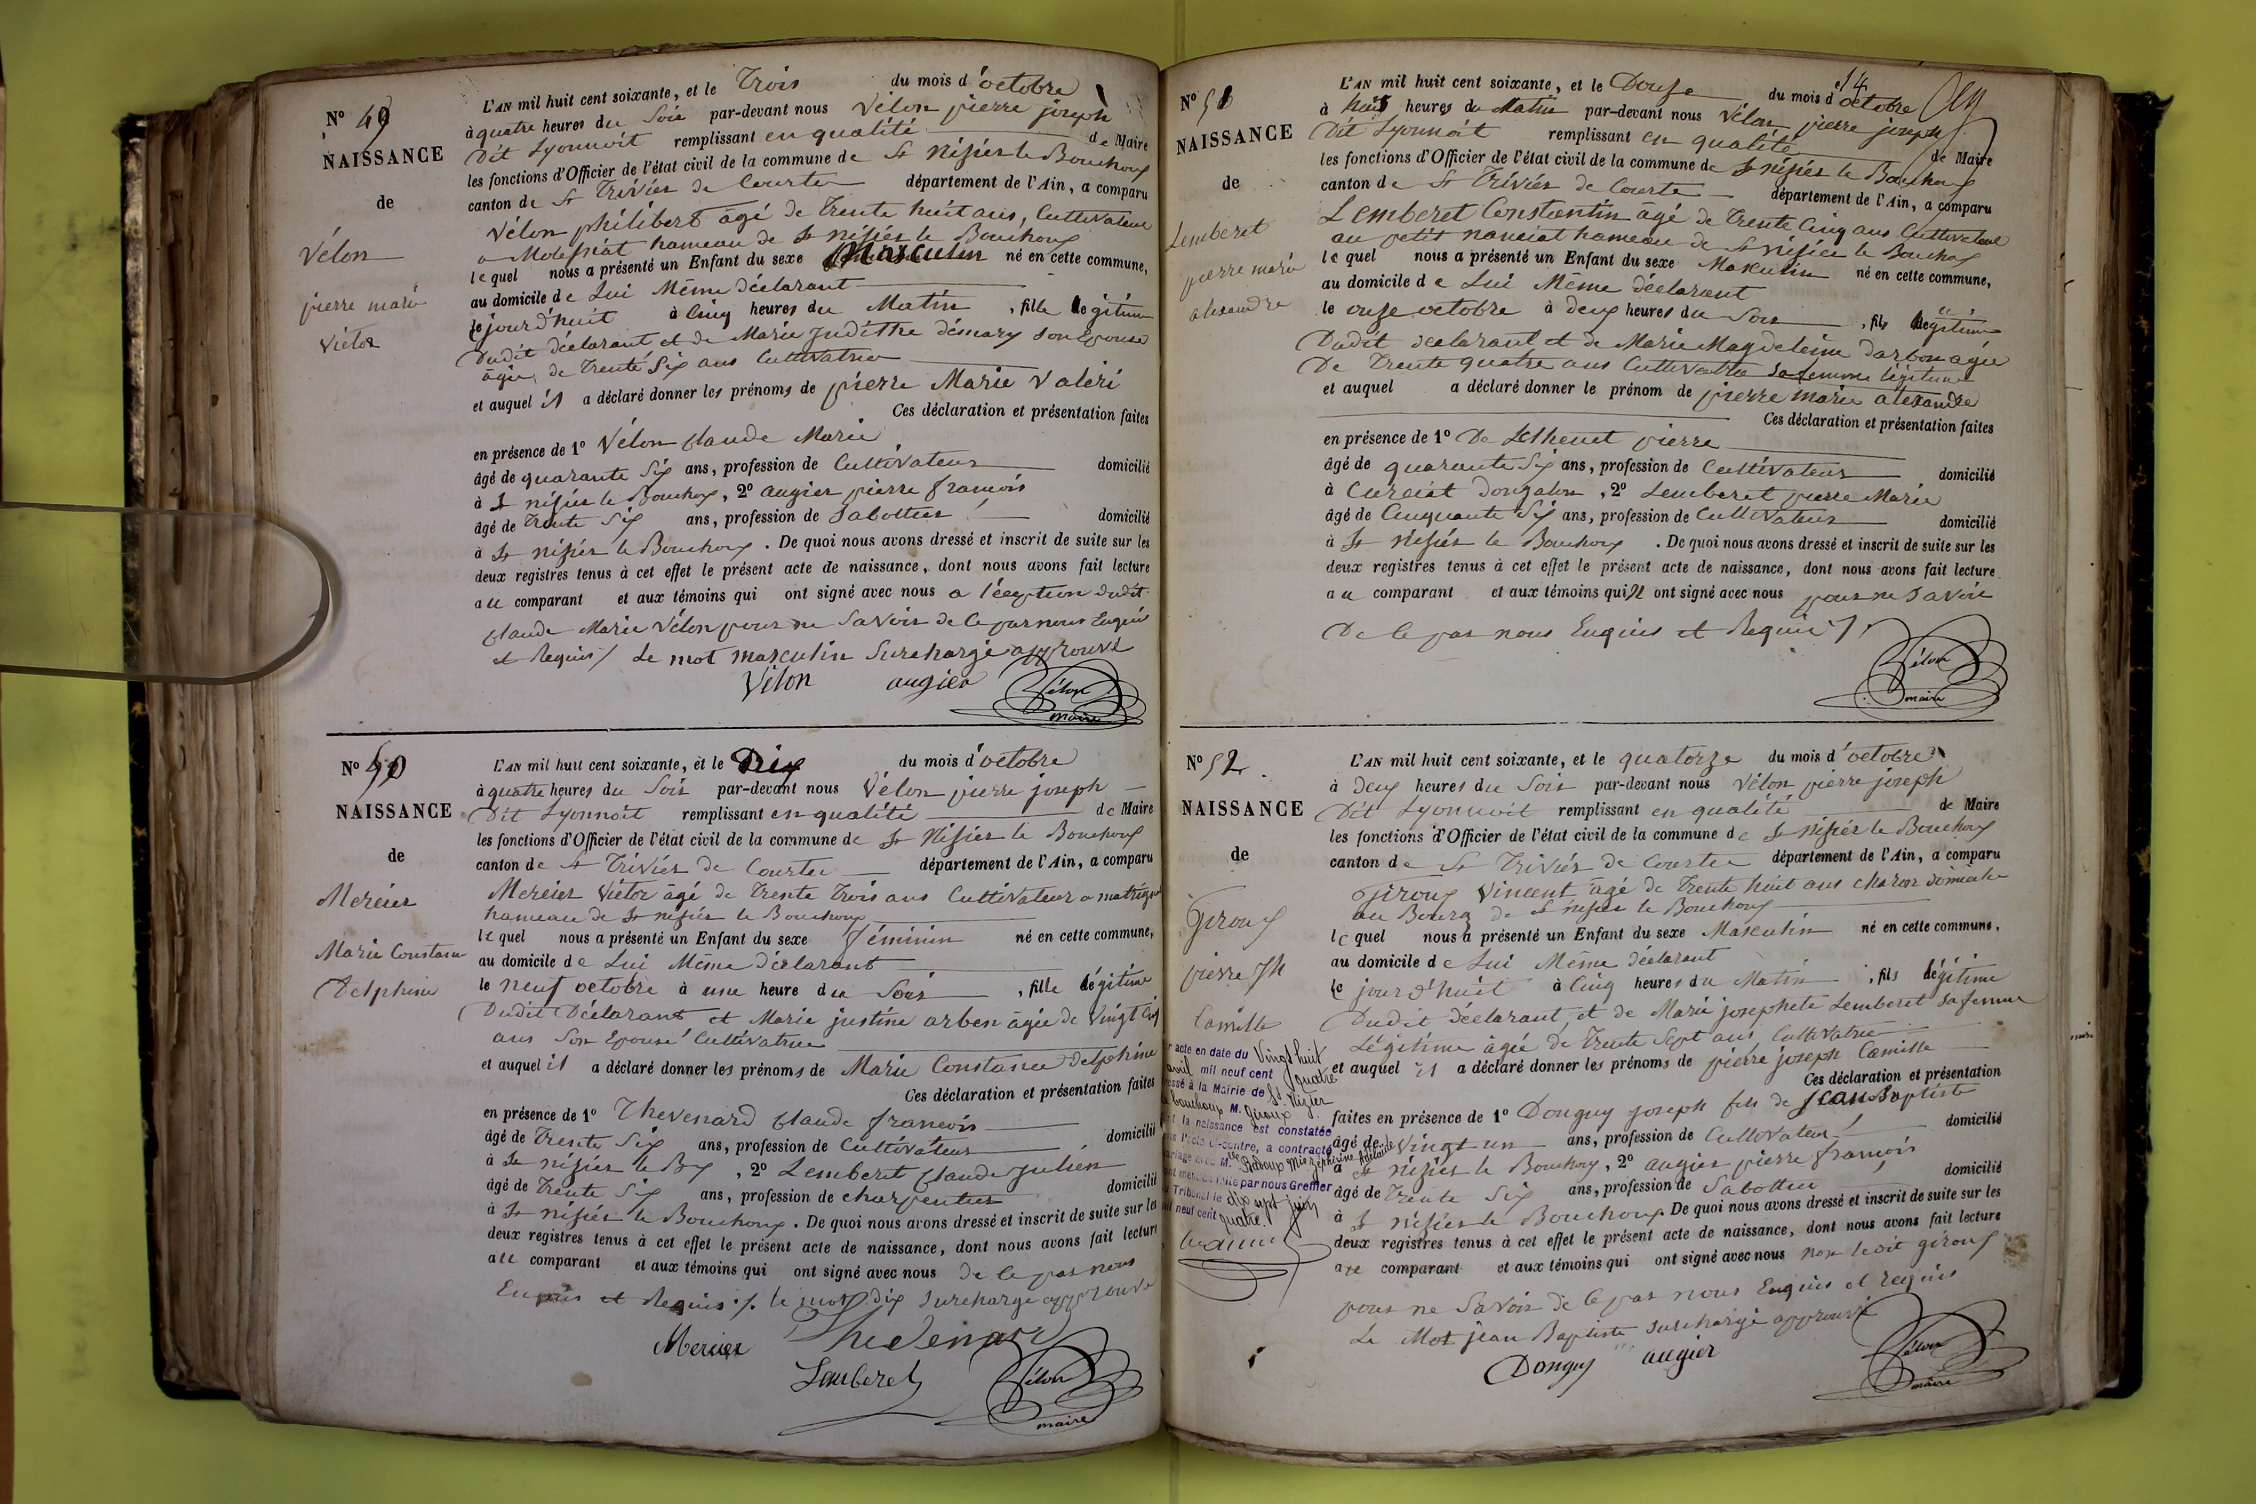 N° 49
NAISSANCE
de
Vélon
pierre marie
victor
L'AN mil huit cent soixante, et le Trois du mois d'octobre
à quatre heures du Soir par-devant nous Vélon pierre joseph
Dit Lyonnoit remplissant en qualité de Maire
les fonctions d'Officier de l'état civil de la commune de St Nisier le Bouchoux
canton de St Trivier de Courtes département de l'Ain, a comparu
Vélon philibert âgé de Trente huit ans, Cultivateur
a hameau de St nisier le Bouchoux
lequel nous a présenté un Enfant du sexe Masculin né en cette commune,
au domicile de Lui Même déclarant
le jourd'huit à Cinq heures du Matin, fille légitime
Dudit déclarant et de Marie Judithe démary son épouse
âgée de Trente Six ans Cultivatrice
et auquel il a déclaré donner les prénoms de pierre Marie Valéri
Ces déclaration et présentation faites
en présence de 1° Vélon Claude Marie
âgé de quarante Six ans, profession de Cultivateur domicilié
à St nisier le Bouchoux, 2° augier pierre francois
âgé de Trente Six ans, profession de Sabottier domicilié
à St nisier le Bouchoux. De quoi nous avons dressé et inscrit de suite sur les
deux registres tenus à cet effet le présent acte de naissance, dont nous avons fait lecture
au comparant et aux témoins qui ont signé avec nous a l'éxeption dudit
Claude Marie Vélon pour ne Savoir de ce par nous Enquis
et Requis / Le mot masculin Surchargé approuvé
Vélon augier Vélon
maire
N° 50
NAISSANCE
de
Mercier
Marie Constance
Delphine
L'AN mil huit cent soixante, et le Dix du mois d'octobre
à quatre heures du Soir par-devant nous Vélon pierre joseph
Dit Lyonnoit remplissant en qualité de Maire
les fonctions d'Officier de l'état civil de la commune de St Nisier le Bouchoux
canton de St Trivier de Courtes département de l'Ain, a comparu
Mercier Victor âgé de Trente Trois ans Cultivateur a
hameau de St nisier le Bouchoux
lequel nous a présenté un Enfant du sexe féminin né en cette commune,
au domicile de Lui Même déclarant
le neuf octobre à une heure du Soir, fille légitime
Dudit Déclarant et Marie justine arben âgée de Vingt Cinq
ans Son Epouse Cultivatrice
et auquel il a déclaré donner les prénoms de Marie Constance Delphine
Ces déclaration et présentation faites
en présence de 1° Thevenard Claude francois
âgé de Trente Six ans, profession de Cultivateur domicilié
à St nisier le Bx, 2° Lemberet Claude Julien
âgé de Trente Six ans, profession de charpentier domicilié
à St nisier le Bouchoux. De quoi nous avons dressé et inscrit de suite sur les
deux registres tenus à cet effet le présent acte de naissance, dont nous avons fait lecture
au comparant et aux témoins qui ont signé avec nous de ce par nous
Enquis et Requis /. le mot dix Surchargé approuvé
Mercier Thevenard
Lemberet Vélon
maire
N° 51
NAISSANCE
de
Lemberet
pierre marie
alexandre
14
L'AN mil huit cent soixante, et le Douze du mois d'octobre
à huit heures du Matin par-devant nous Vélon pierre joseph
Dit Lyonnoit remplissant en qualité de Maire
les fonctions d'Officier de l'état civil de la commune de St nisier le Bouchoux
canton de St Trivier de Courtes département de l'Ain, a comparu
Lemberet Constantin âgé de Trente Cinq ans Cultivateur
au petit nanciat hameau de St nisier le Bouchoux
lequel nous a présenté un Enfant du sexe Masculin né en cette commune,
au domicile de Lui Même déclarant
le onze octobre à deux heures du Soir, fils légitime
Dudit declarant et de Marie Magdeleine Darbon agée
De Trente quatre ans Cultivatrice sa femme légitime
et auquel a déclaré donner le prénom de pierre marie alexandre
Ces déclaration et présentation faites
en présence de 1° De Lethenet pierre
âgé de quarante Six ans, profession de Cultivateur domicilié
à Curciat Dongalon, 2° Lemberet pierre Marie
âgé de Cinquante Six ans, profession de Cultivateur domicilié
à St Nisier le Bouchoux. De quoi nous avons dressé et inscrit de suite sur les
deux registres tenus à cet effet le présent acte de naissance, dont nous avons fait lecture
au comparant et aux témoins qui n ont signé avec nous pour ne Savoir
De ce par nous Enquis et Requis /.
Vélon
maire
N° 52
NAISSANCE
de
Giroux
pierre Jh
Camille
acte en date du Vingt huit
avril mil neuf cent quatre
dressé à la Mairie de St Nizier
le bouchoux M. Giroux
dont la naissance est constatée
dans l'acte ci-contre, a contracté
mariage avec Melle
par nous Greffier
du Tribunal le dix sept juin
mil neuf cent quatre
L'AN mil huit cent soixante, et le quatorze du mois d'octobre
à deux heures du Soir par-devant nous Vélon pierre joseph
Dit Lyonnoit remplissant en qualité de Maire
les fonctions d'Officier de l'état civil de la commune de St nisier le Bouchoux
canton de St Trivier de Courtes département de l'Ain, a comparu
Giroux Vincent âgé de Trente huit ans charon domicilié
au Bourg de St nisier le Bouchoux
lequel nous a présenté un Enfant du sexe Masculin né en cette commune,
au domicile de Lui Même déclarant
le jourd'huit à Cinq heures du Matin, fils légitime
Dudit déclarant et de Marie josephete Lemberet Sa femme
Légitime âgée de Trente Sept ans Cultivatrice
et auquel il a déclaré donner les prénoms de pierre joseph Camille
Ces déclaration et présentation
faites en présence de 1° Donguy joseph fils de jean Baptiste
âgé de Vingt un ans, profession de Cultivateur domicilié
à St nisier le Bouchoux, 2° augier pierre francois
âgé de Trente Six ans, profession de Sabottier domicilié
à St nisier le Bouchoux De quoi nous avons dressé et inscrit de suite sur les
deux registres tenus à cet effet le présent acte de naissance, dont nous avons fait lecture
au comparant et aux témoins qui ont signé avec nous non ledit giroux
pour ne Savoir de ce par nous Enquis et requis
Le Mot jean Baptiste surchargé approuvé
Donguy augier Vélon
maire